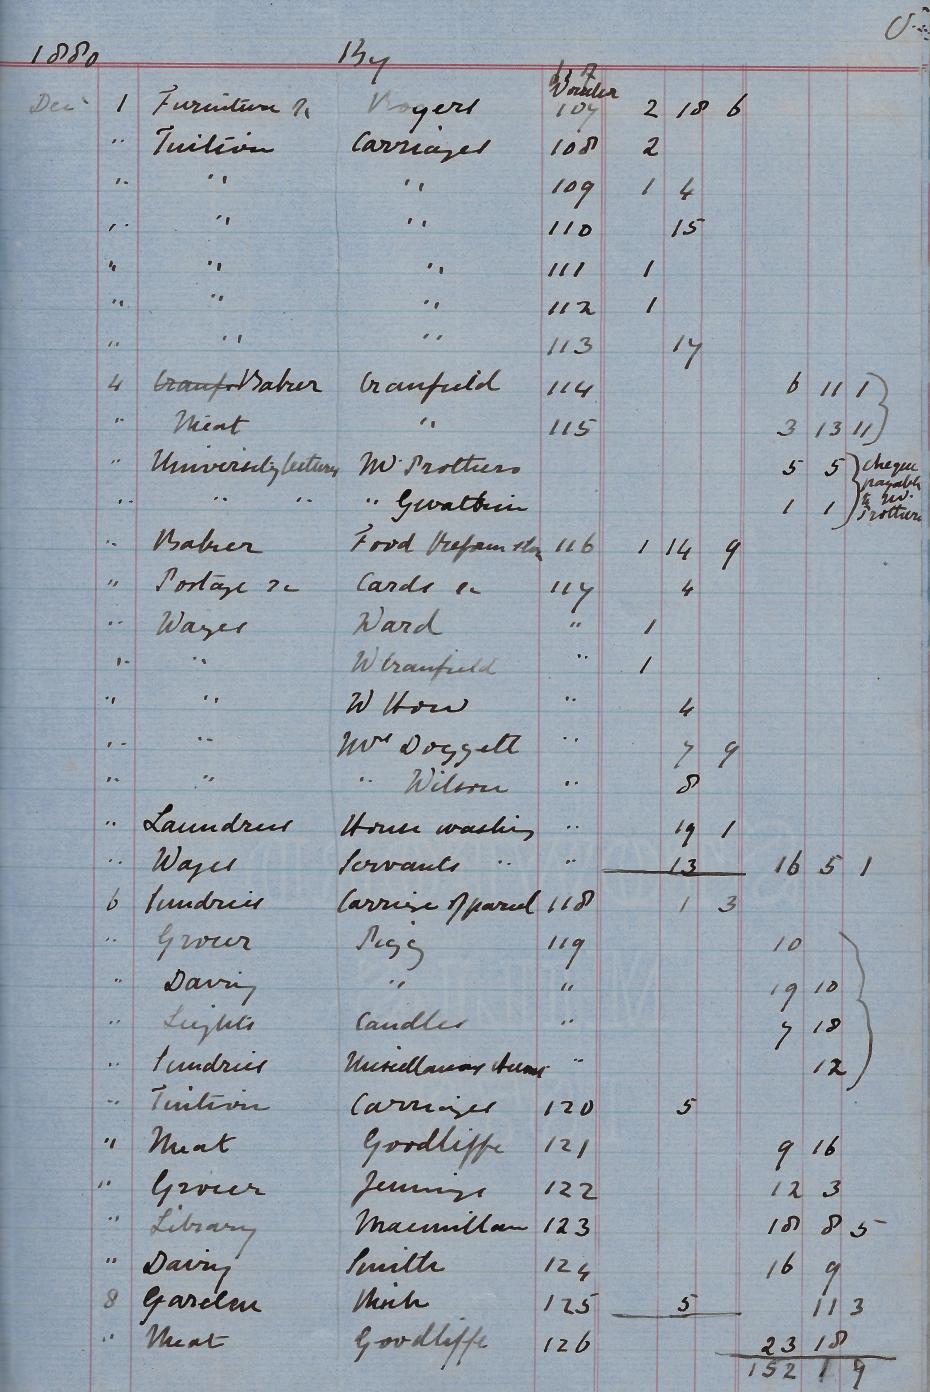 1880 By
Voucher
Dec 1 Furniture &c Rogers 107 2 18 6
" Tuition Carriages 108 2
" " " 109 1 4
" " " 110 15
" " " 111 1
" " " 112 1
" " " 113 17
4 Cranf Baker Cranfield 114 6 11 1
" Meat " 115 3 13 11
" University lectures Mr Prothero 5 5 cheque payable to Mr. Prothero
" " " " Gwatkin 1 1
" Baker Food 116 1 14 9
" Postage &c Cards &c 117 4
" Wages Ward " 1
" " W Cranfield " 1
" " W How " 4
" " Mrs Doggett " 7 9
" " " Wilson " 8
" Laundress House washing " 19 1
" Wages Servants " " 13 16 5 1
6 Sundries Carriage of parcel 118 1 3
" Grocer Pigg 119 10
" Dairy " " 19 10
" Lights Candles " 7 18
" Sundries Miscellaneous " 12
" Tuition Carriages 120 5
" Meat Goodliffe 121 9 16
" Grocer Jennings 122 12 3
" Library Macmillan 123 18 8 5
" Dairy Smith 124 16 9
8 Garden 125 5 11 3
" Meat Goodliffe 126 23 18
152 1 9